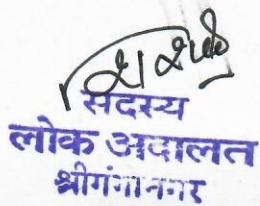 सदस्य
लोक अदालत
श्रीगंगानगर